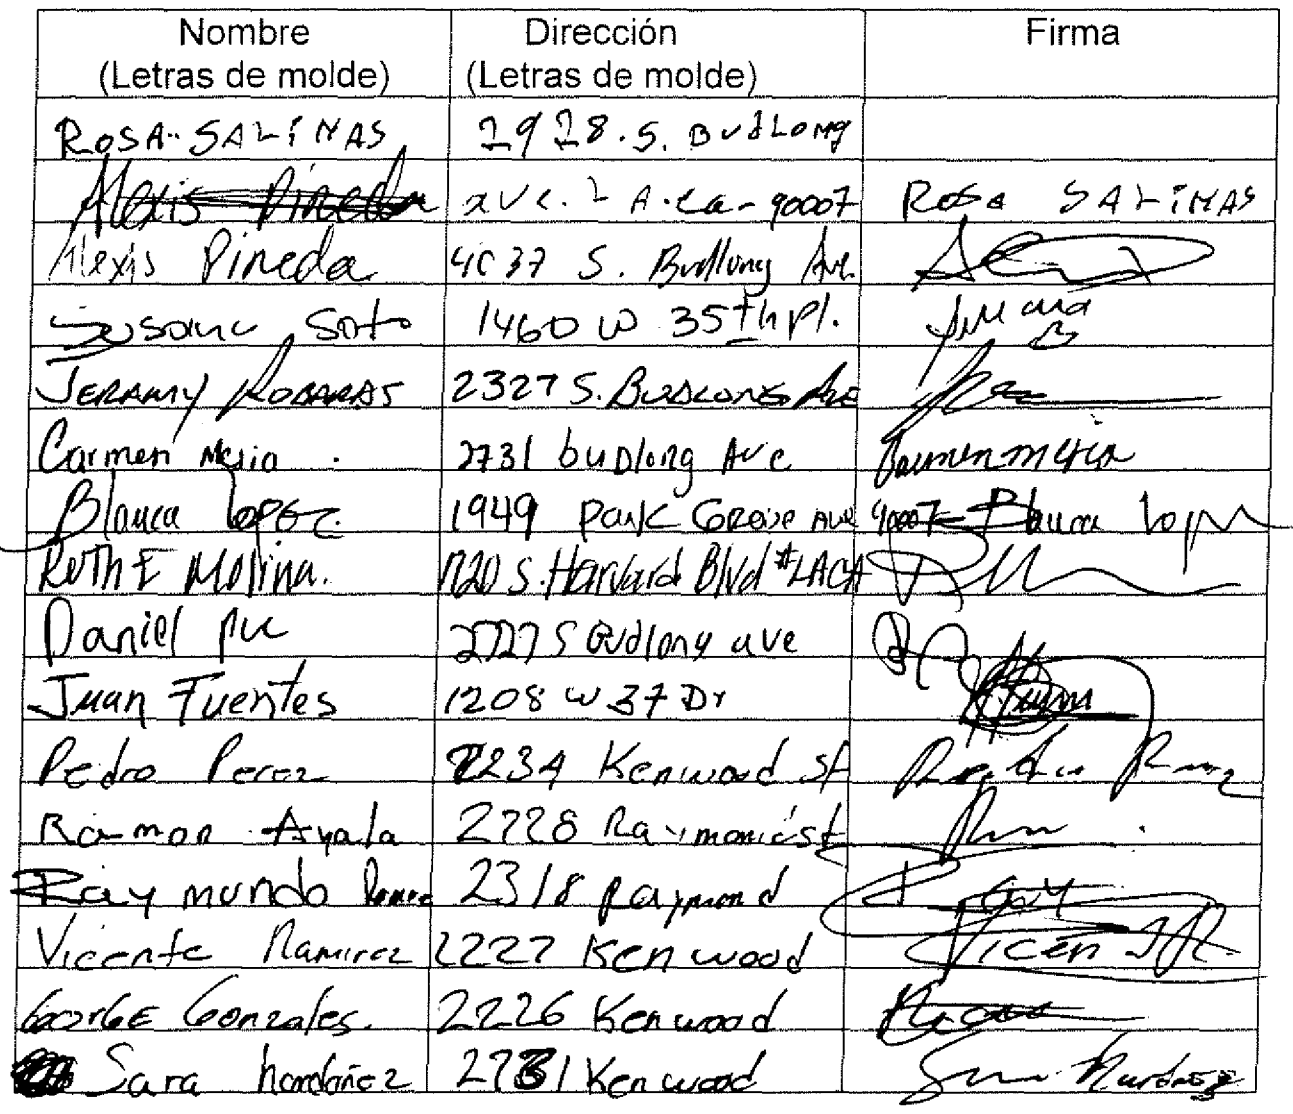 Nombre Dirección Firma
(Letras de molde) (Letras de molde)
ROSA SALINAS 2928.S. BUdLONg
Alexis Pineda AVe. L A. ca- 90007 Rosa SALINAS
Alexis Pineda 4037 S. Budlong Ave.
Susana Soto 1460 W 35th pl.
JERAMY 2327 S. BUDLONG AVE
Carmen Mejia 2731 buDlong Ave Carmen mejia
Blanca LOPEZ 1949 Park Grove Ave 90007 Blanca Lopez
RUTH E Molina. 1720 S. Harvard Blvd # LACA
Daniel Puc 2727 S Budlong ave
Juan Fuentes 1208 W 37 Dr
Pedro Perez 2234 Kenwood st
Ramon Ayala 2228 Raymond st
Raymundo 2318 Raymond Ray
Vicente Ramirez 2227 Kenwood Vicen
GeorGE Gonzales. 2226 Kenwood
Sara 2231 Kenwood